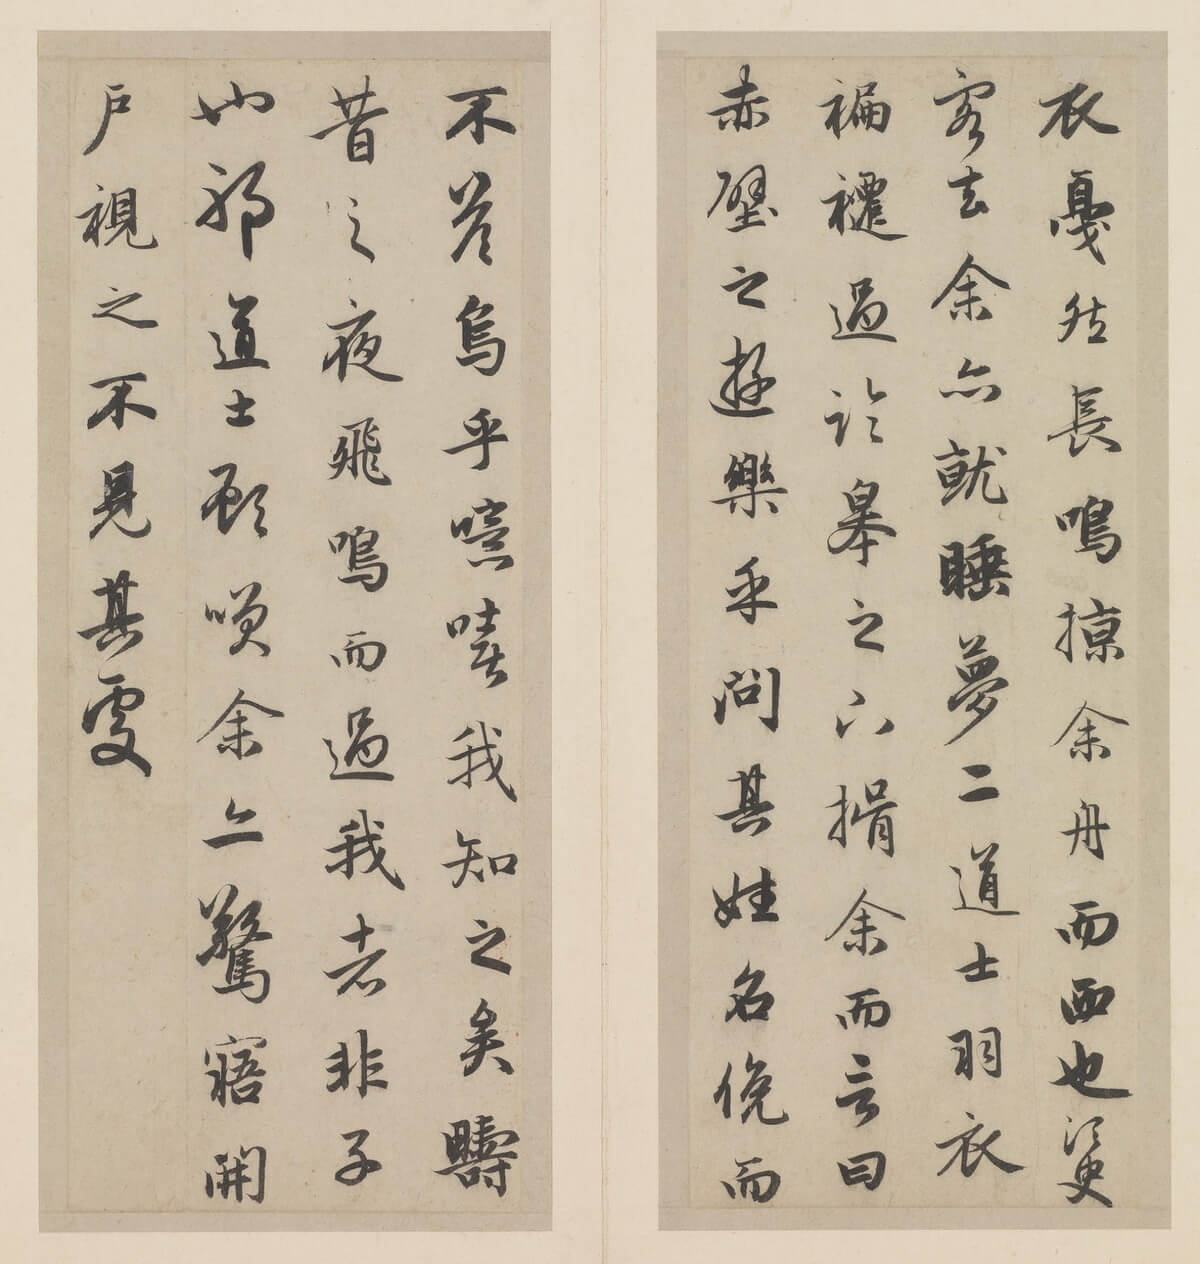 衣戛然長鳴掠余舟而西也須臾
客去余亦就睡夢二道士羽衣
褊褼過臨皋之下揖余而言曰
赤壁之遊樂乎問其姓名俛而
不荅烏乎噫嘻我知之矣疇
昔之夜飛鳴而過我者非子
也邪道士顧咲余亦驚寤開
戶視之不見其處